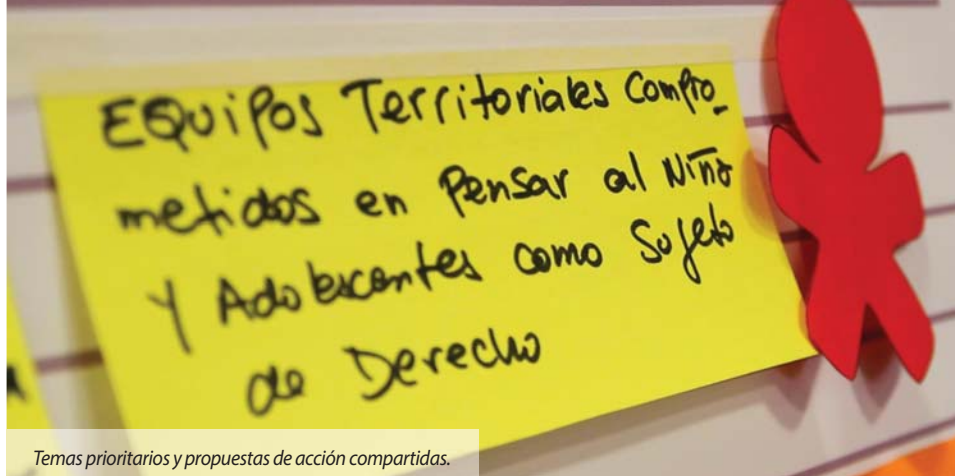 EQuiPos Territoriales Compro_
metidos en Pensar al Niño
Y Adolescentes como Sujeto
de Derecho
Temas prioritarios y propuestas de acción compartidas.